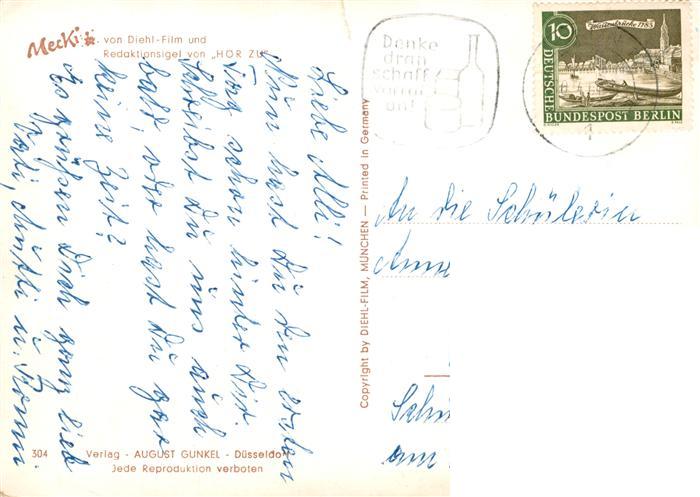 Mecki
von Diehl-Film und
Redaktionsigel von „HÖR ZU"
Liebe Alli!
Nun hast Du den ersten
Tag schon hinter Dir.
Schreibst Du uns auch
bald, oder hast Du gar
keine Zeit?
Es grüßen Dich ganz lieb
Vati, Mutti u. Romi.
304 Verlag - AUGUST GUNKEL - Düsseldorf
Jede Reproduktion verboten
Copyright by DIEHL-FILM, MÜNCHEN — Printed in Germany
Denke
dran
schaff
vorrat
an!
10
1785
DEUTSCHE
BUNDESPOST BERLIN
1
An die Schülerin
Anne
Schü
am